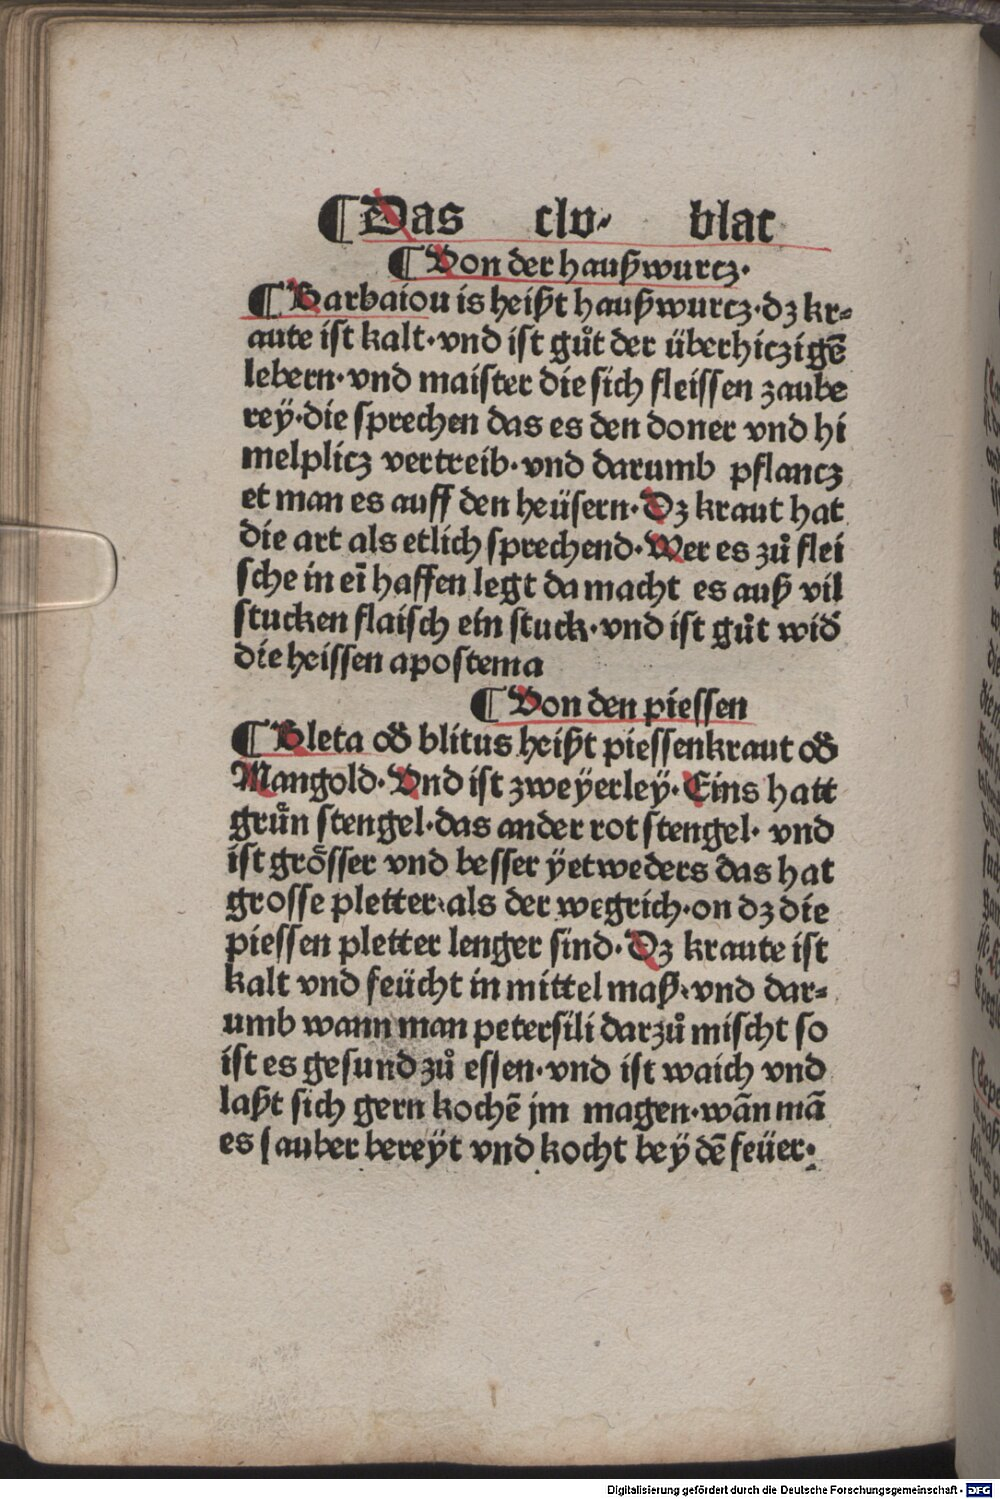 ¶ Das clv· blat
¶ Von der haußwurcz·
¶ Barbaiou is heißt haußwurcz·dz kr⸗
aute ist kalt·vnd ist gůt der überhiczigē
lebern·vnd maister die sich fleissen zaube
rey·die sprechen das es den doner vnd hi
melplicz vertreib·vnd darumb pflancz
et man es auff den heüsern·Dz kraut hat
die art als etlich sprechend·Wer es zů flei
sche in eī haffen legt da macht es auß vil
stucken flaisch ein stuck·vnd ist gůt wid̕
die heissen apostema
¶ Von den piessen
¶ Bleta od̕ blitus heißt piessenkraut od̕
Mangold·Vnd ist zweyerley·Eins hatt
grůn stengel·das ander rot stengel· vnd
ist grösser vnd besser ÿetweders das hat
grosse pletter·als der wegrich·on dz die
piessen pletter lenger sind·Dz kraute ist
kalt vnd feücht in mittel maß·vnd dar⸗
umb wann man petersili darzů mischt so
ist es gesund zů essen·vnd ist waich vnd
laßt sich gern kochē jm magen·wān mā
es sauber bereÿt vnd kocht bey dē feüer·
Digitalisierung gefördert durch die Deutsche Forschungsgemeinschaft - DFG